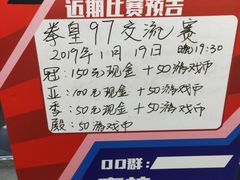 近期比赛预告
拳皇97交流赛
2019年1月19日 晚19:30
冠：150元现金+50游戏币
亚：100元现金+50游戏币
季：50元现金+50游戏币
殿：50游戏币
QQ群：